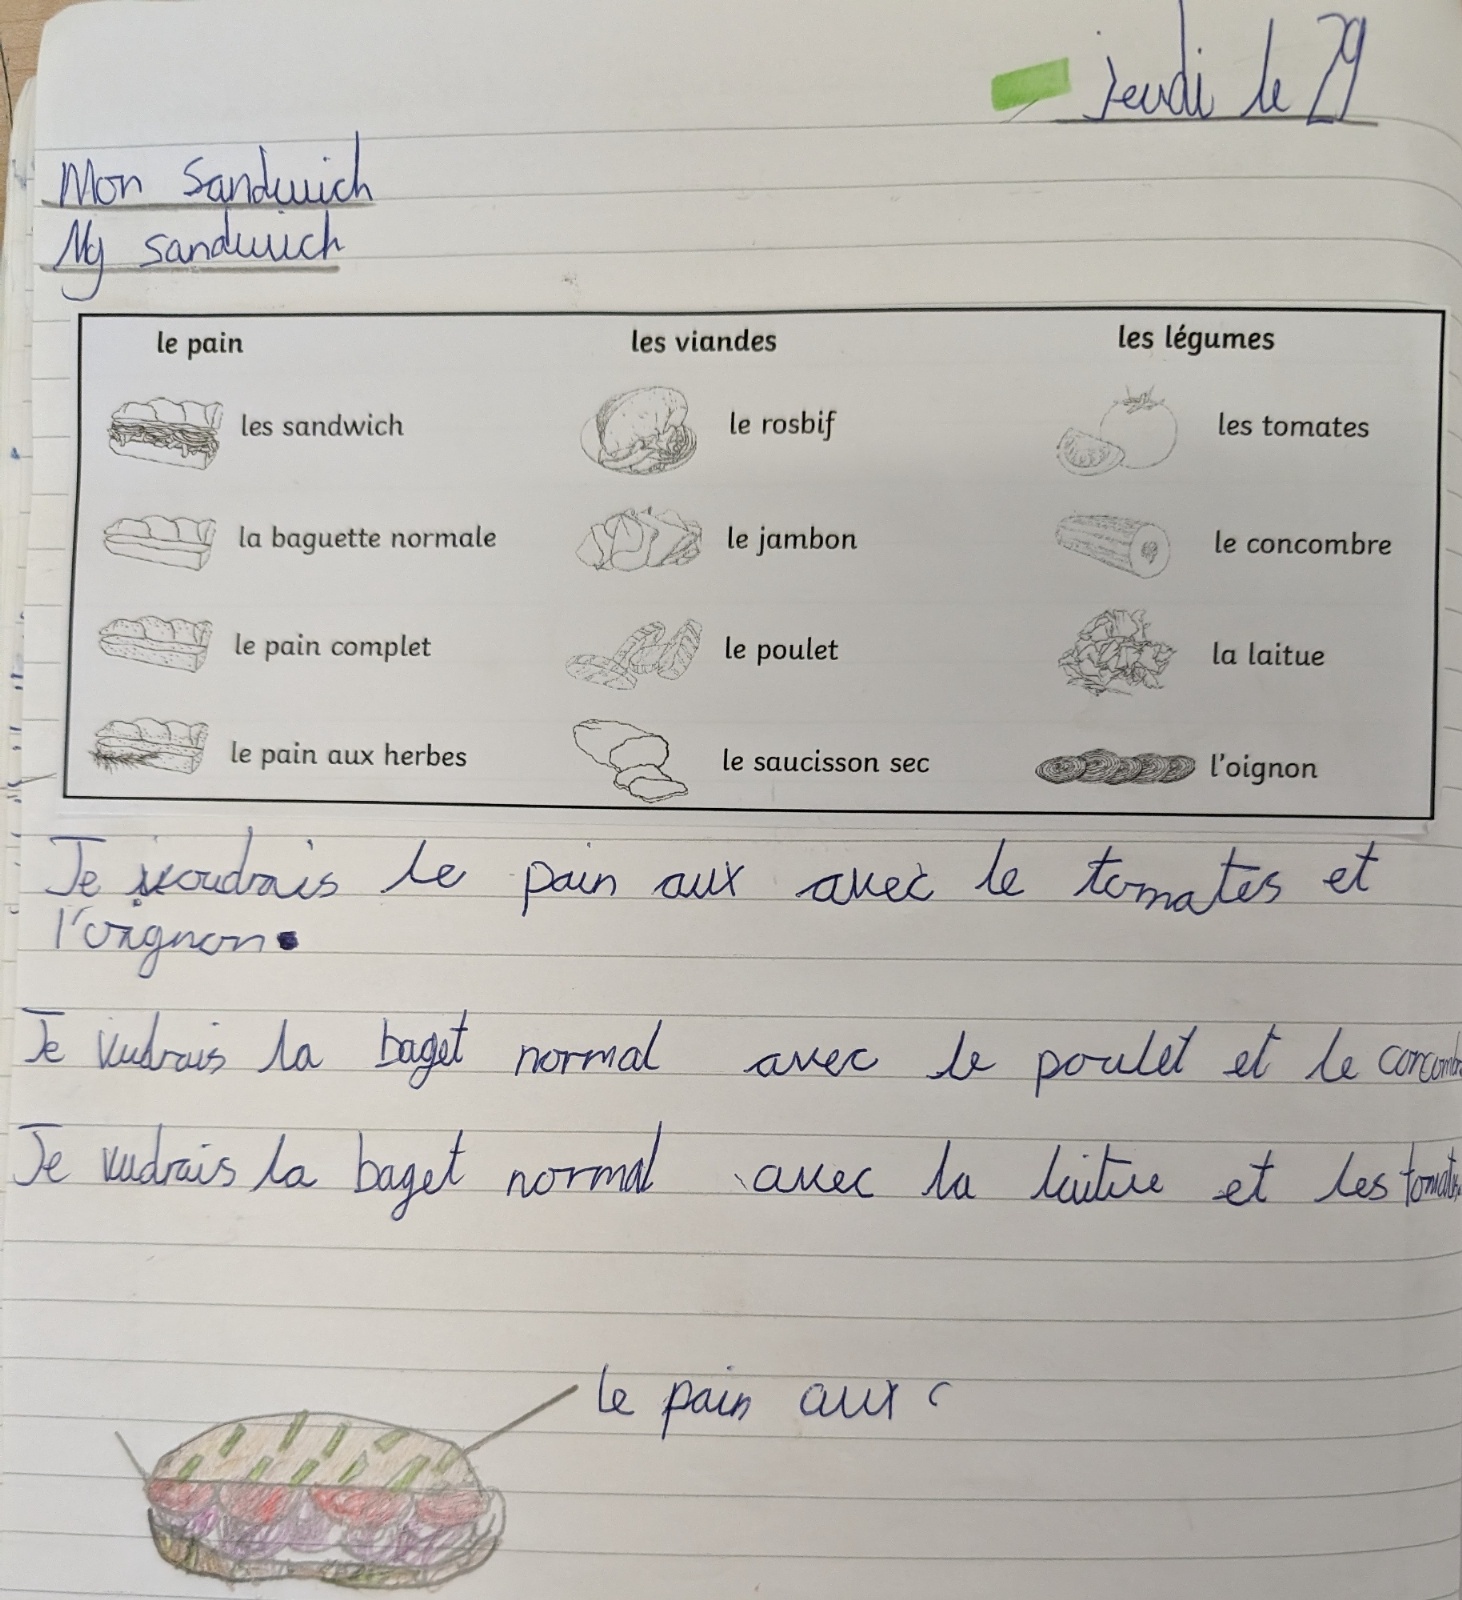 jeudi le 29
Mon Sandwich
My sandwich
le pain les viandes les légumes
les sandwich le rosbif les tomates
la baguette normale le jambon le concombre
le pain complet le poulet la laitue
le pain aux herbes le saucisson sec l'oignon
Je voudrais le pain aux avec le tomates et
l'oignon.
Je vudrais la baget normal avec le poulet et le concombre
Je vudrais la baget normal avec la laitue et les tomates
le pain aux